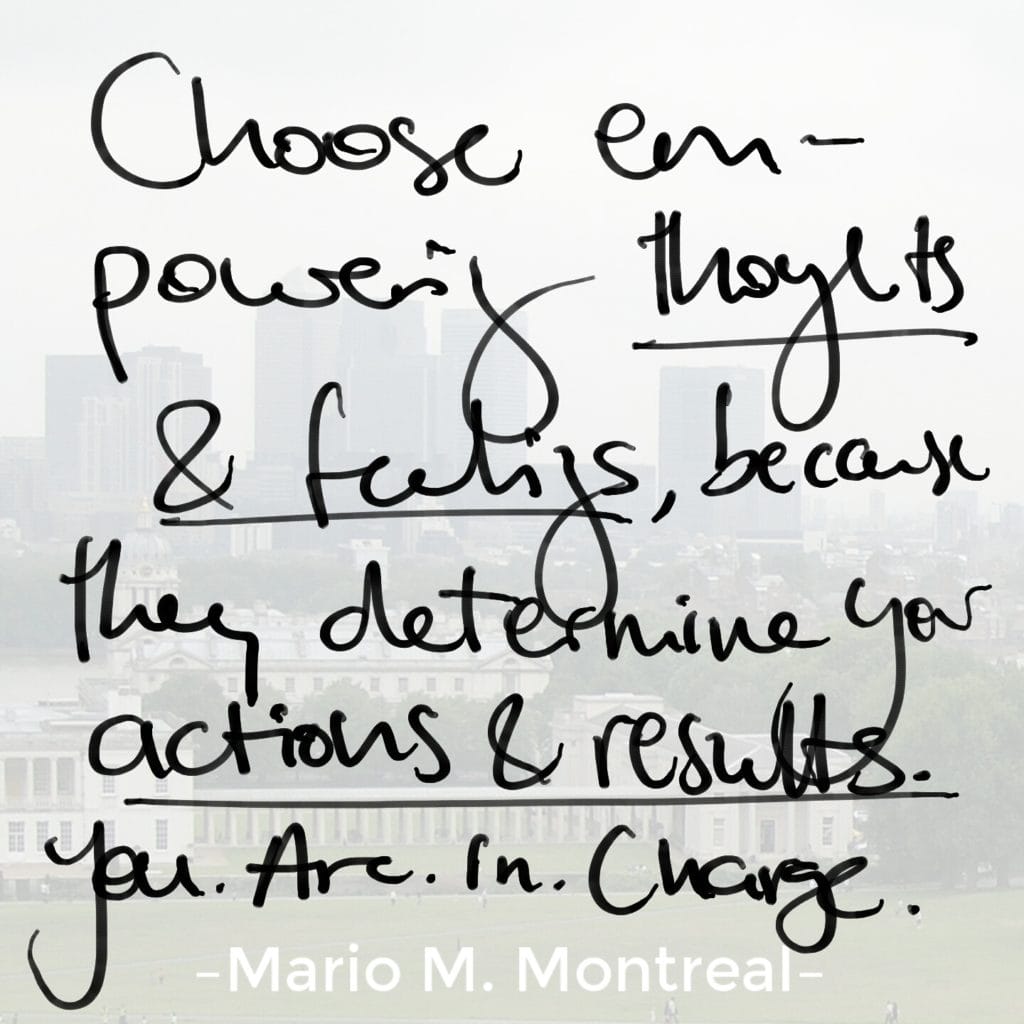 Choose em-
powering thoughts
& feelings, because
they determine your
actions & results.
You. Are. In. Charge.
-Mario M. Montreal-